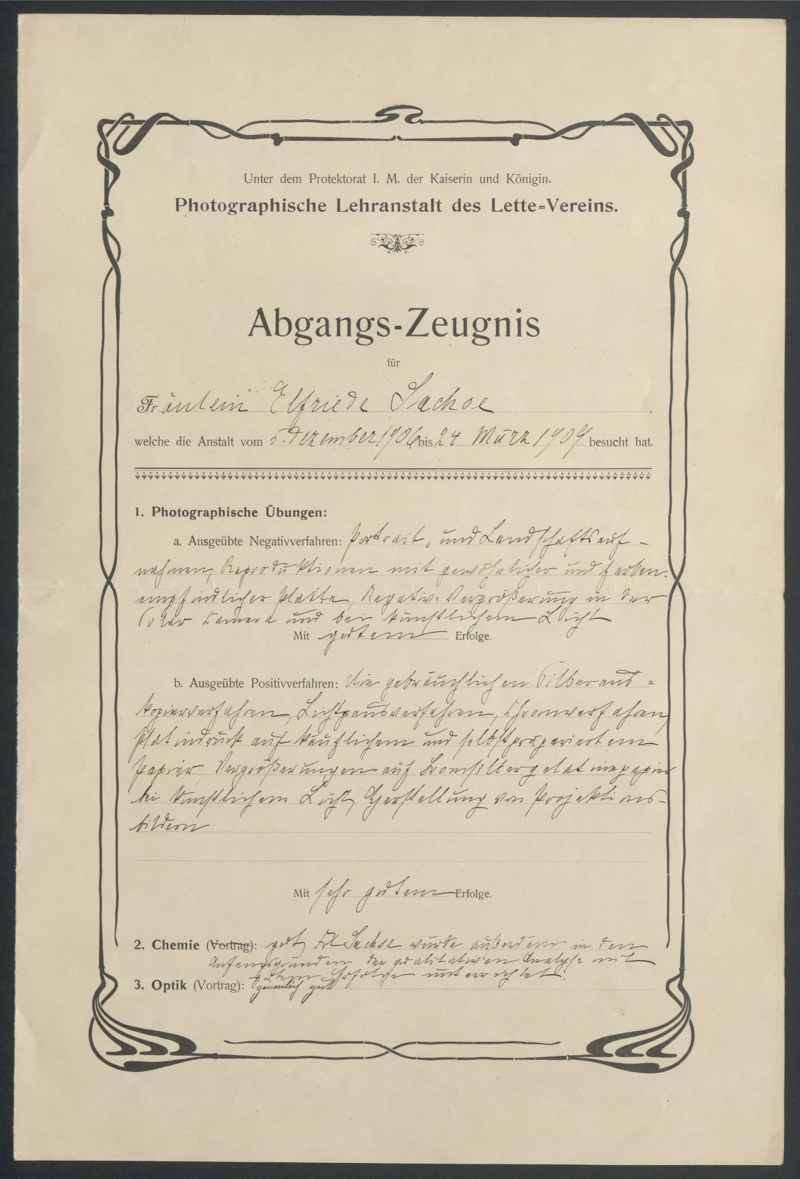 Unter dem Protektorat I. M. der Kaiserin und Königin.
Photographische Lehranstalt des Lette=Vereins.
Abgangs-Zeugnis
für
Fräulein Elfriede Sachse
welche die Anstalt vom 5. Dezember 1906 bis 24 März 1909 besucht hat.
1. Photographische Übungen:
a. Ausgeübte Negativverfahren: Portrait- und Landschaftsauf-
nahmen, Reproduktionen mit gewöhnlicher und farben-
empfindlicher Platte, Negativ-Vergrößerung in der
Solar Camera und bei künstlichem Licht
Mit gutem Erfolge.
b. Ausgeübte Positivverfahren: die gebräuchlichen Silberaus-
kopierverfahren, Lichtpausverfahren, Chromverfahren,
Platindruck auf käuflichem und selbstpräpariertem
Papier Vergrößerungen auf Bromsilbergelatinepapier
bei künstlichem Licht, Herstellung von Projektions-
bildern
Mit sehr gutem Erfolge.
2. Chemie (Vortrag): gut, Frl. Sachse wurde außerdem in den
Anfangsgründen der qualitativen Analyse mit
gutem Erfolge unterrichtet.
3. Optik (Vortrag): ziemlich gut